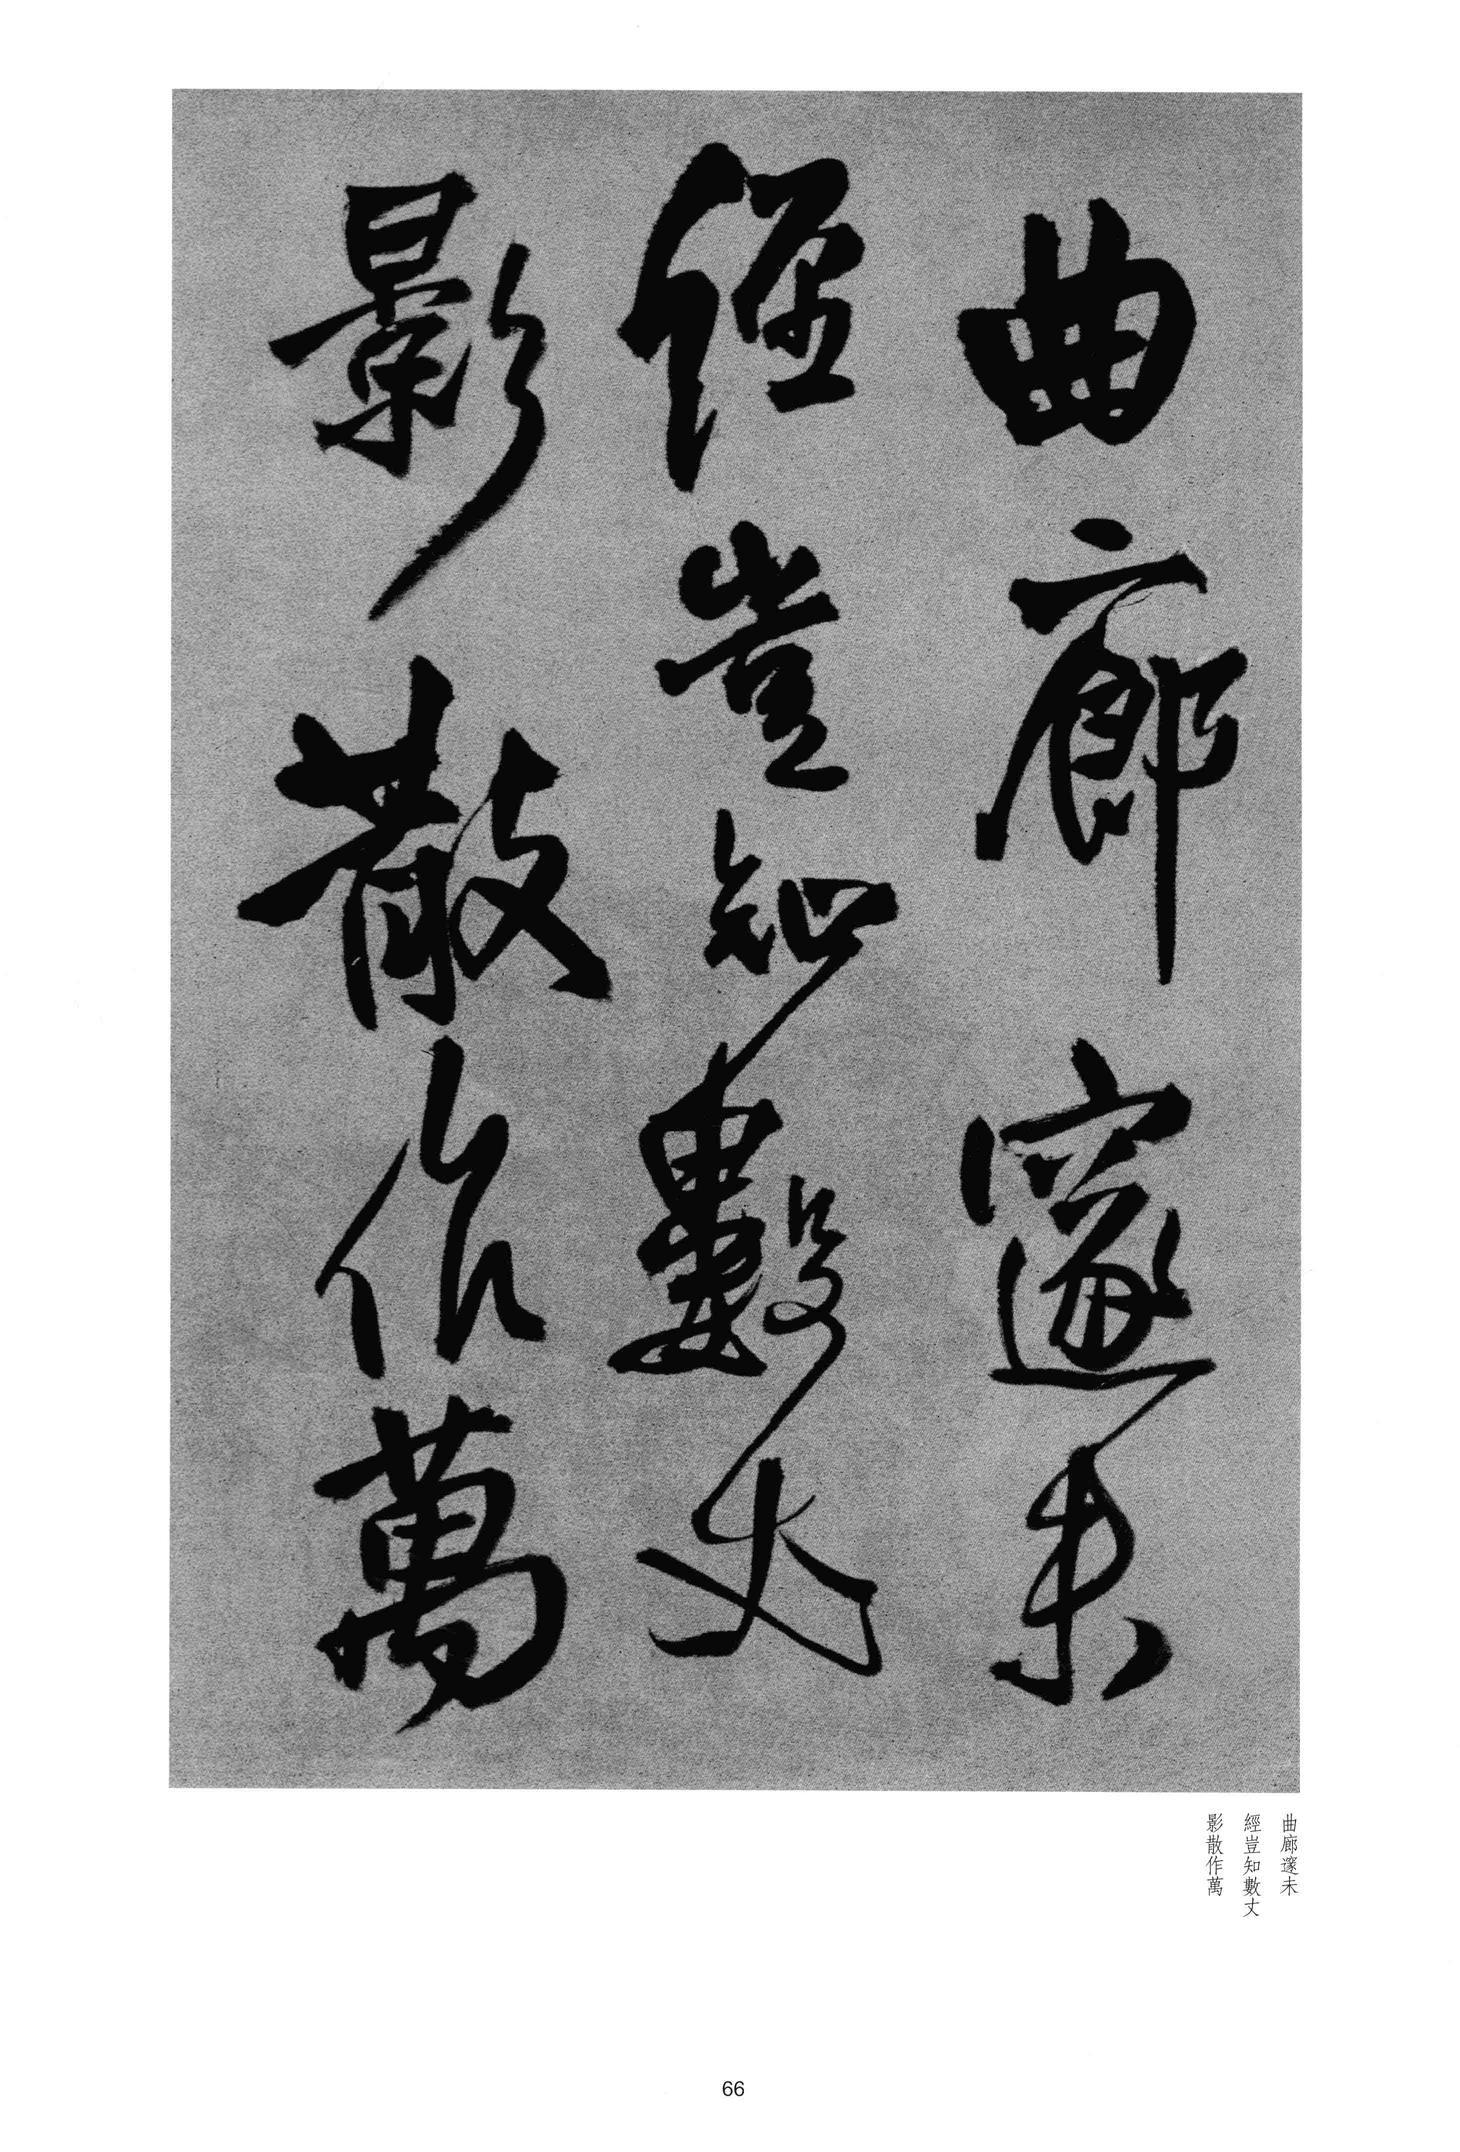 曲廊邃未
經豈知數丈
影散作萬
曲廊邃未
經豈知數丈
影散作萬
66